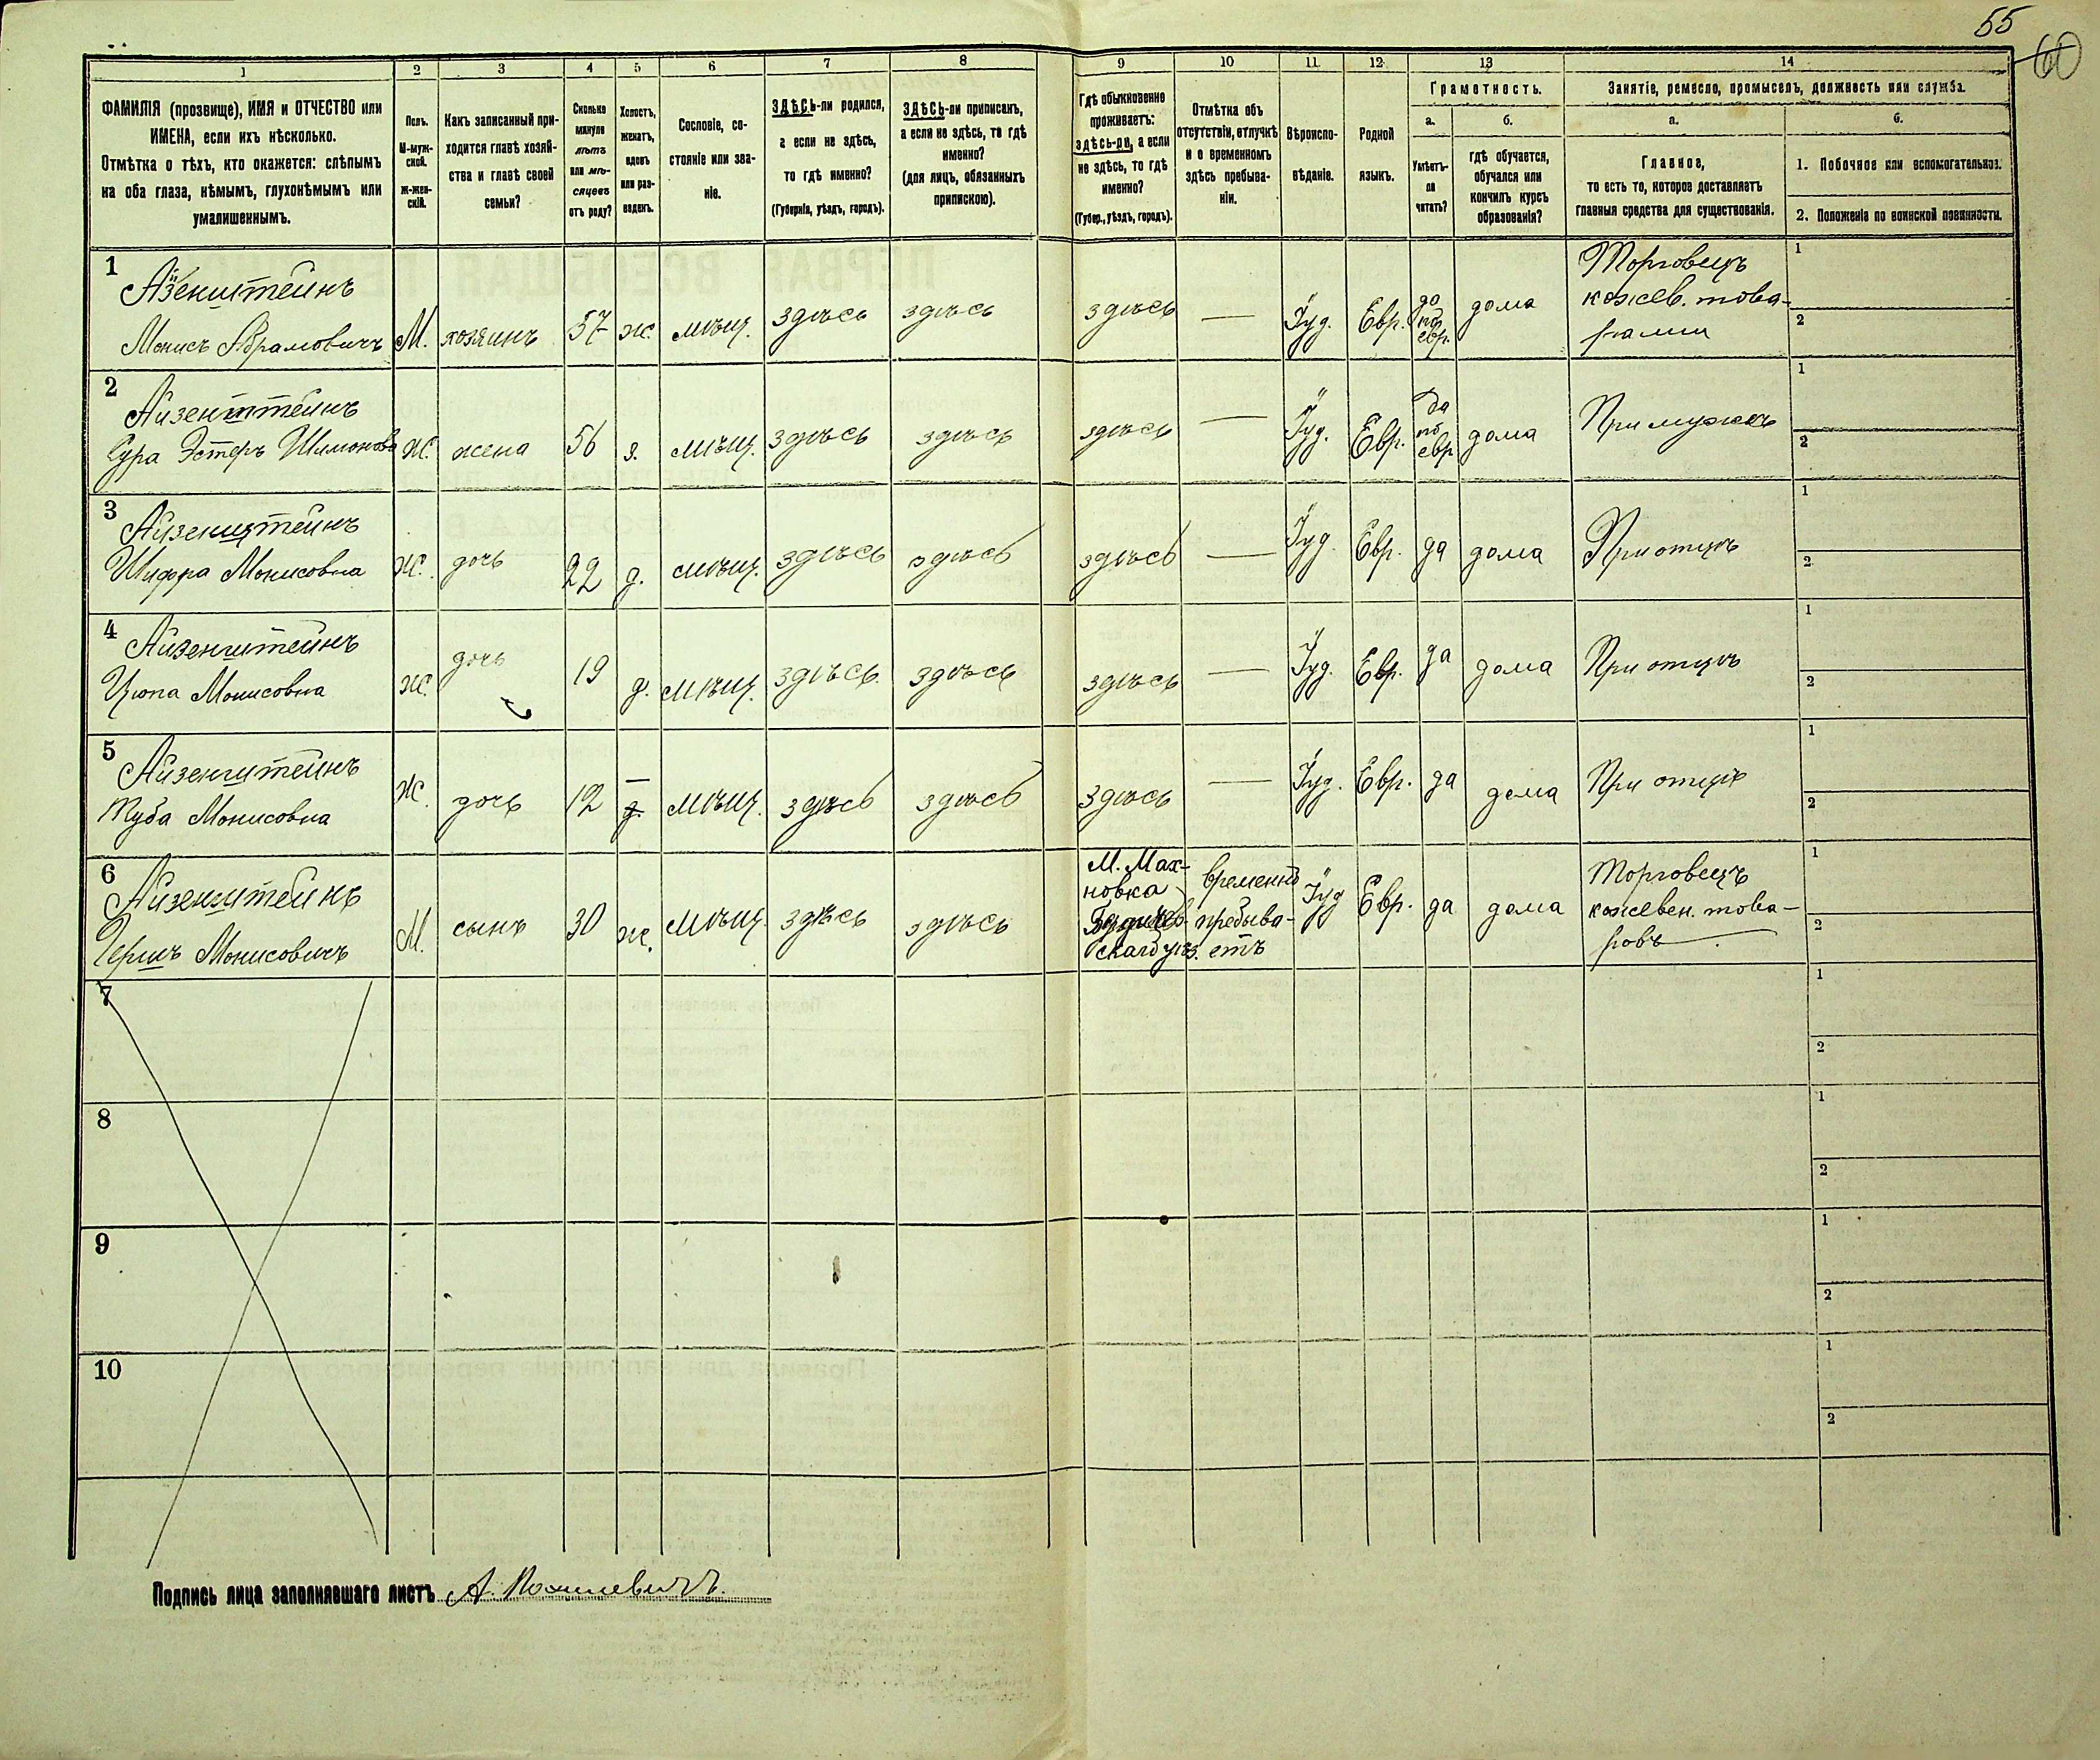 55
60
1 2 3 4 5 6 7 8 9 10 11 12 13 14
ФАМИЛІЯ (прозвище), ИМЯ и ОТЧЕСТВО или
ИМЕНА, если ихъ нѣсколько.
Отмѣтка о тѣхъ, кто окажется: слѣпымъ
на оба глаза, нѣмымъ, глухонѣмымъ или
умалишеннымъ.
Полъ.
М-муж-
ской.
Ж-жен-
скій.
Какъ записанный при-
ходится главѣ хозяй-
ства и главѣ своей
семьи?
Сколько
минуло
лѣтъ
или мѣ-
сяцевъ
отъ роду?
Холостъ,
женатъ,
вдовъ
или раз-
веденъ.
Сословіе, со-
стояніе или зва-
ніе.
ЗДѢСЬ-ли родился,
а если не здѣсь,
то гдѣ именно?
(Губернія, уѣздъ, городъ).
ЗДѢСЬ-ли приписанъ,
а если не здѣсь, то гдѣ
именно?
(для лицъ, обязанныхъ
припискою).
Гдѣ обыкновенно
проживаетъ:
здѣсь-ли, а если
не здѣсь, то гдѣ
именно?
(Губер., уѣздъ, городъ).
Отмѣтка объ
отсутствіи, отлучкѣ
и о временномъ
здѣсь пребыва-
ніи.
Вѣроиспо-
вѣданіе.
Родной
языкъ.
Грамотность.
а.
Умѣетъ-
ли
читать?
б.
гдѣ обучается,
обучался или
кончилъ курсъ
образованія?
Занятіе, ремесло, промыселъ, должность или служба.
а.
Главное,
то есть то, которое доставляетъ
главныя средства для существованія.
б.
1. Побочное или вспомогательное.
2. Положеніе по воинской повинности.
1
Айзенштейнъ
Монисъ Абрамовичъ
М.
хозяинъ
57
ж.
мѣщ.
здѣсь
здѣсь
здѣсь
—
Іуд.
Евр.
да
по
евр.
дома
Торговецъ
кожев. това-
рами
1
2
2
Айзенштейнъ
Сура Эстеръ Шимонова
Ж.
жена
56
з.
мѣщ.
здѣсь
здѣсь
здѣсь
—
Іуд.
Евр.
да
по
евр
дома
При мужѣ
1
2
3
Айзенштейнъ
Шифра Монисовна
Ж.
дочь
22
д.
мѣщ.
здѣсь
здѣсь
здѣсь
—
Іуд.
Евр.
да
дома
При отцѣ
1
2
4
Айзенштейнъ
Цюпа Монисовна
Ж.
дочь
19
д.
мѣщ.
здѣсь
здѣсь
здѣсь
—
Іуд.
Евр.
да
дома
При отцѣ
1
2
5
Айзенштейнъ
Туба Монисовна
Ж.
дочь
12
—
д.
мѣщ.
здѣсь
здѣсь
здѣсь
—
Іуд.
Евр.
да
дома
При отцѣ
1
2
6
Айзенштейнъ
Гершъ Монисовичъ
М.
сынъ
30
ж.
мѣщ.
здѣсь
здѣсь
М. Мах-
новка
Бердичев
скаго уѣз.
временно
пребыва-
етъ
Іуд
Евр.
да
дома
Торговецъ
кожевен. това-
ровъ
1
2
7
1
2
8
1
2
9
1
2
10
1
2
Подпись лица заполнявшаго листъ А.